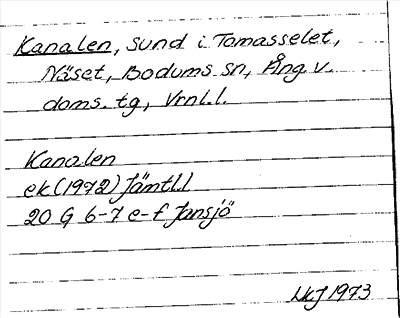 Kanalen, sund i Tomasselet,
Näset, Bodums sn, Ång. v.
doms. tg, Vrnl.l.
Kanalen
ek (1972) Jämtl.l
20 G 6-7 e-f Jansjö
LKJ 1973